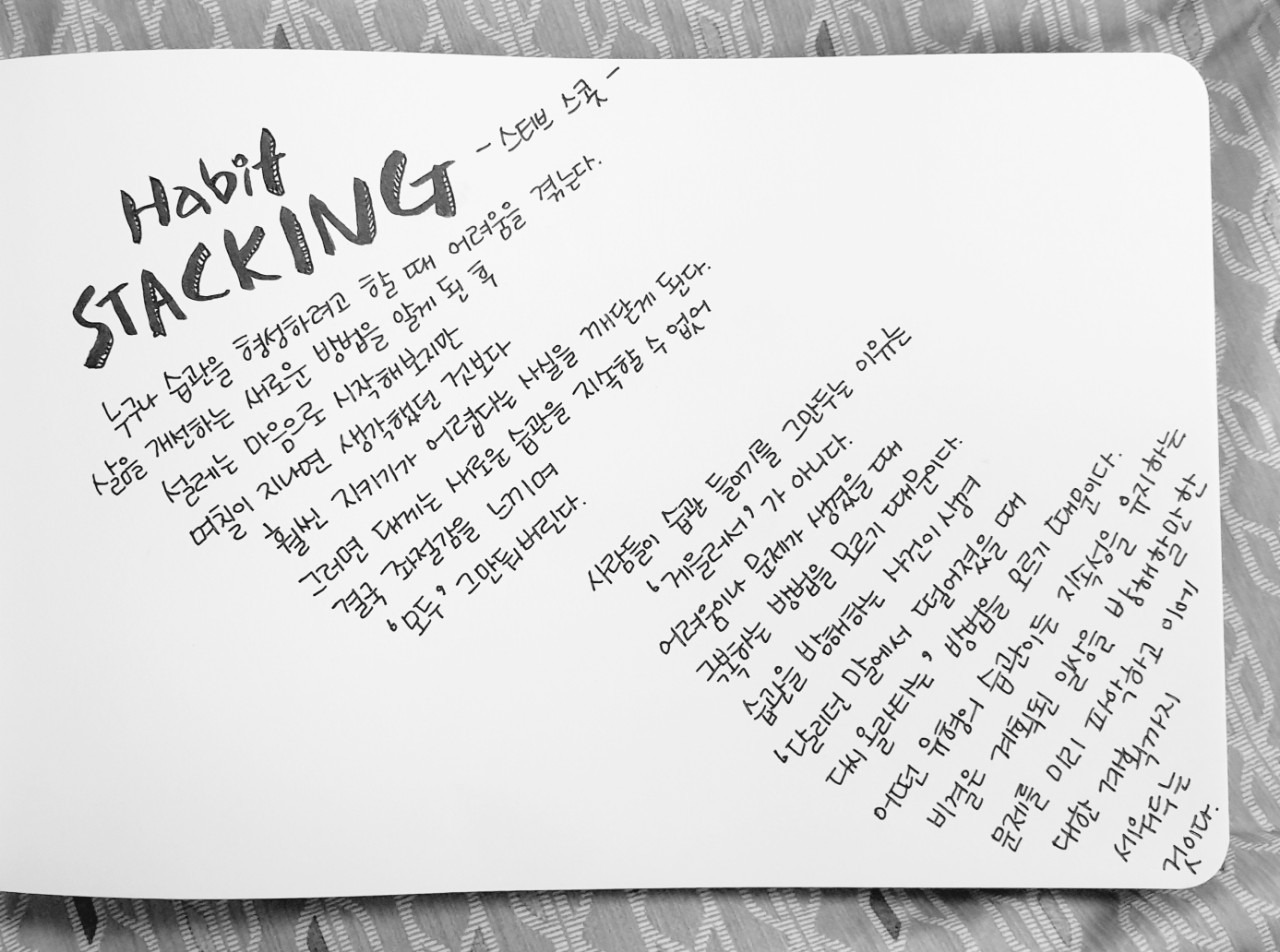 Habit
STACKING
- 스티브 스콧 -
누구나 습관을 형성하려고 할 때 어려움을 겪는다.
삶을 개선하는 새로운 방법을 알게 된 후
설레는 마음으로 시작해보지만
며칠이 지나면 생각했던 것보다
훨씬 지키기가 어렵다는 사실을 깨닫게 된다.
그러면 대게는 새로운 습관을 지속할 수 없어
결국 좌절감을 느끼며
'모두' 그만둬버린다.
사람들이 습관 들이기를 그만두는 이유는
'게을러서'가 아니다.
어려움이나 문제가 생겼을 때
극복하는 방법을 모르기 때문이다.
습관을 방해하는 사건이 생겨
'달리던 말에서 떨어졌을 때
다시 올라타는' 방법을 모르기 때문이다.
어떤 유형의 습관이든 지속성을 유지하는
비결은 계획된 일상을 방해할만한
문제를 미리 파악하고 이에
대한 계획까지
세워두는
것이다.